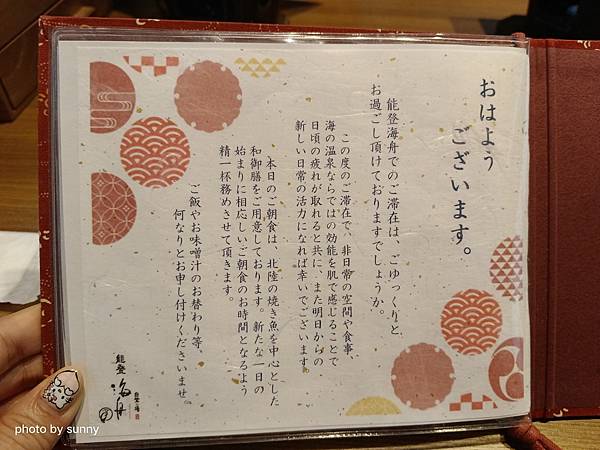 おはよう
ございます。
能登海舟でのご滞在は、ごゆっくりと
お過ごし頂けておりますでしょうか。
この度のご滞在で、非日常の空間や食事、
海の温泉ならではの効能を肌で感じることで
日頃の疲れが取れると共に、また明日からの
新しい日常の活力になれば幸いでございます。
本日のご朝食は、北陸の焼き魚を中心とした
和御膳をご用意しております。新たな一日の
始まりに相応しいご朝食のお時間となるよう
精一杯務めさせて頂きます。
ご飯やお味噌汁のお替わり等、
何なりとお申し付けくださいませ。
能登
海舟
photo by sunny